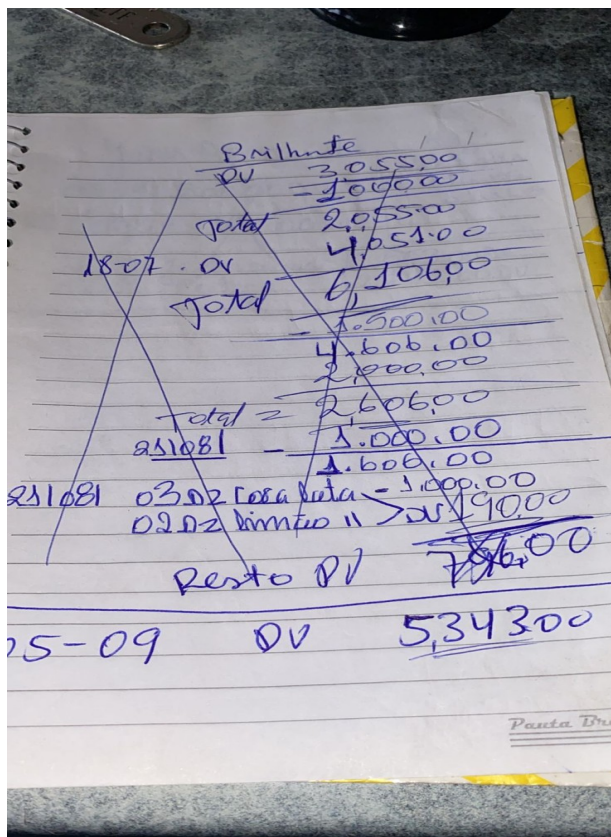 Brilhante / /
DV 3,055,00
- 1000,00
Total 2,055,00
18-07. DV 4,051,00
Total 6,106,00
- 1.500,00
4.606,00
2,000,00
Total = 2,606,00
211081 - 1.000,00
1.606,00
211081 03 DZ - 1,000,00
02 DZ 11 > DV 190,00
Resto DV 796,00
05-09 DV 5,343,00
Pauta